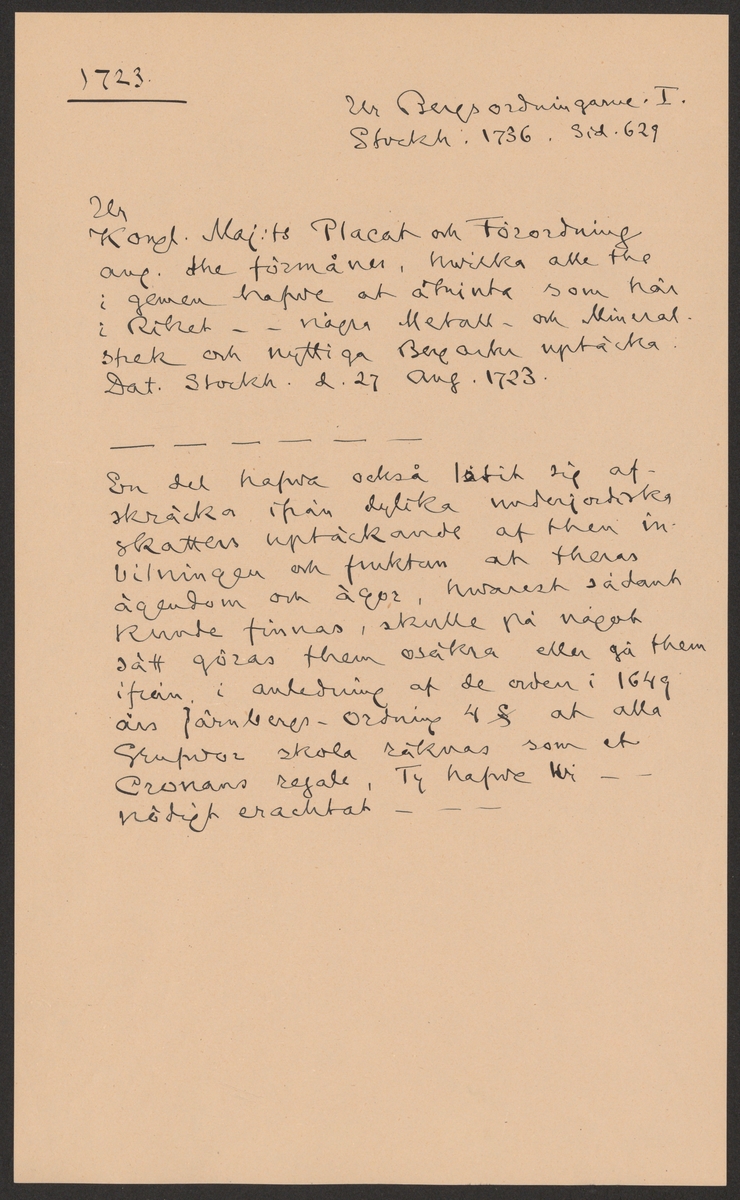 1723.
Ur Bergsordningarne. I.
Stockh. 1736. Sid. 629
Ur
Kongl. Maj:ts Placat och Förordning
ang. the förmåner, hwilka alle the
i gemen hafwe at åtniuta som här
i Riket – – några Metall- och Mineral-
strek och nyttiga Bergarter uptäcka.
Dat. Stockh. d. 27 Aug. 1723.
— — — — — —
En del hafwa också låtit sig af-
skräcka ifrån dylika underjordiska
skatters uptäckande af then in-
bilningen och fruktan at theras
ägendom och ägor, hwarest sådant
kunde finnas, skulle på något
sätt göras them osäkra eller gå them
ifrån, i anledning af de orden i 1649
års Järnbergs-Ordning 4 § at alla
Grufwor skola räknas som et
Cronans regale, Ty hafwe Wi – –
nödigt erachtat – – –